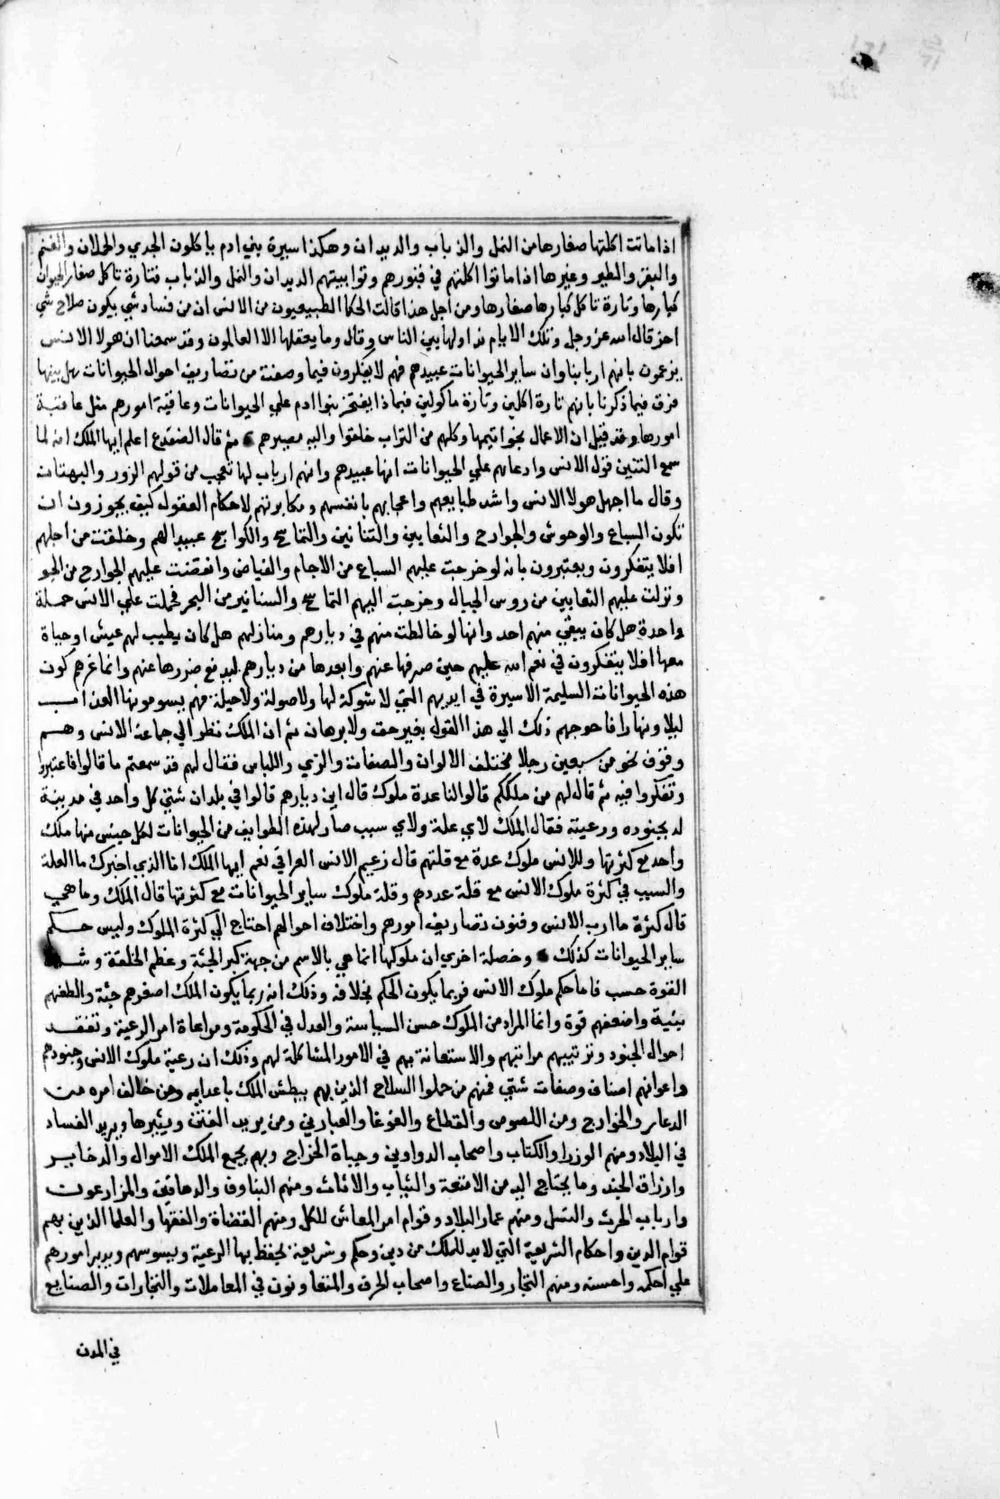 اذا ماتت اكلتها صغارها من النمل والذباب والديدان وهكذا سيرة بني ادم ياكلون الجدي والحملان والغنم
والبقر والطير وغيرها اذا ماتوا اكلتهم في قبورهم وتوابيتهم الديدان والنمل والذباب فتارة تاكل صغار الحيوان
كبارها وتارة تاكل كبارها صغارها ومن اجل هذا قالت الحكما الطبيعيون من الانس ان من فساد شي يكون صلاح شي
اخر قال الله عز وجل وتلك الايام نداولها بين الناس وقال وما يعقلها الا العالمون وقد سمعنا ان هولا الانس
يزعمون بانهم اربابنا وان ساير الحيوانات عبيدهم فهم لا يتفكرون فيما وصفت من تصاريف احوال الحيوانات هل بينها
فرق فيما ذكرنا بانهم تارة اكلين وتارة ماكولين فبماذا يفتخر بنوا ادم علي الحيوانات وعاقبة امورهم مثل عاقبة
امورها وقد قيل ان الاعمال بخواتيمها وكلهم من التراب خلقوا واليه مصيرهم ثم قال الضفدع اعلم ايها الملك انه لما
سمع التنين قول الانس وادعاهم علي الحيوانات انها عبيدهم وانهم ارباب لها تعجب من قولهم الزور والبهتان
وقال ما اجهل هولا الانس واشد طباعهم واعجابهم بانفسهم ومكابرتهم لاحكام العقول كيف يجوزون ان
تكون السباع والوحوش والجوارح والثعابين والتنانين والتماسيح والكواسج عبيدا لهم وخلقت من اجلهم
افلا يتفكرون ويعتبرون بانه لو خرجت عليهم السباع من الاجام والغياض وانقضت عليهم الجوارح من الجو
ونزلت عليهم الثعابين من روس الجبال وخرجت اليهم التماسيح والسنانير من البحر فحملت علي الانس حملة
واحدة هل كان يبقي منهم احد وانها لو خالطت منهم في ديارهم ومنازلهم هل كان يطيب لهم عيش او حياة
معها افلا يتفكرون في نعم الله عليهم حين صرفها عنهم وابعدها من ديارهم ليدفع ضررها عنهم وانما غرهم كون
هذه الحيوانات السليمة الاسيرة في ايديهم التي لا شوكة لها ولا صولة ولا حيلة فهم يسومونها العذاب
ليلا ونهارا فاحوجهم ذلك الي هذا القول بغير حق ولا برهان ثم ان الملك نظر الي جماعة الانس وهم
وقوف نحو من سبعين رجلا مختلف الالوان والصفات والزي واللباس فقال لهم قد سمعتم ما قالوا فاعتبروا
وتفكروا فيه ثم قال لهم من ملككم قالوا لنا عدة ملوك قال اين ديارهم قالوا في بلدان شتي كل واحد في مدينة
له بجنوده ورعيته فقال الملك لاي علة ولاي سبب صار لهذه الطوايف من الحيوانات لكل جنس منها ملك
واحد مع كثرتها وللانس ملوك عدة مع قلتهم قال زعيم الانس العراقي نعم ايها الملك انا الذي اخبرك ما العلة
والسبب في كثرة ملوك الانس مع قلة عددهم وقلة ملوك ساير الحيوانات مع كثرتها قال الملك وما هي
قال لكثرة ماارب الانس وفنون تصاريف امورهم واختلاف احوالهم احتاج الي كثرة الملوك وليس حكم
ساير الحيوانات كذلك وخصلة اخري ان ملوكها انما هي بالاسم من جهة كبر الجثة وعظم الخلقة و
القوة حسب فاما حكم ملوك الانس فربما يكون الحكم بخلافه وذلك انه ربما يكون الملك اصغرهم جثة والطفهم
بنية واضعفهم قوة وانما المراد من الملوك حسن السياسة والعدل في الحكومة ومراعاة امر الرعية وتفقد
احوال الجنود وترتيبهم مراتبهم والاستعانة بهم في الامور المشاكلة لهم وذلك ان رعية ملوك الانس وجنودهم
واعوانهم اصناف وصفات شتي فمنهم من حملوا السلاح الذين بهم يبطش الملك باعدايه ومن خالف امره من
الدعار والخوارج ومن اللصوص والقطاع والغوغا والعيارين ومن يريد الفتن ويثيرها ويريد الفساد
في البلاد ومنهم الوزرا والكتاب واصحاب الدواوين وجباة الخراج وبهم يجمع الملك الاموال والدخاير
وارزاق الجند وما يحتاج اليه من الامتعة والثياب والاثاث ومنهم البناون والدهاقين والمزارعون
وارباب الحرث والنسل ومنهم عمار البلاد وقوام امر المعاش للكل ومنهم القضاة والفقها والعلما الذين بهم
قوام الدين واحكام الشريعة التي لابد للملك من دين وحكم وشريعة يحفظ بها الرعية ويسوسهم ويدبر امورهم
علي احكمه واحسنه ومنهم التجار والصناع واصحاب الحرف والمتعاونون في المعاملات والتجارات والصنايع
في المدن